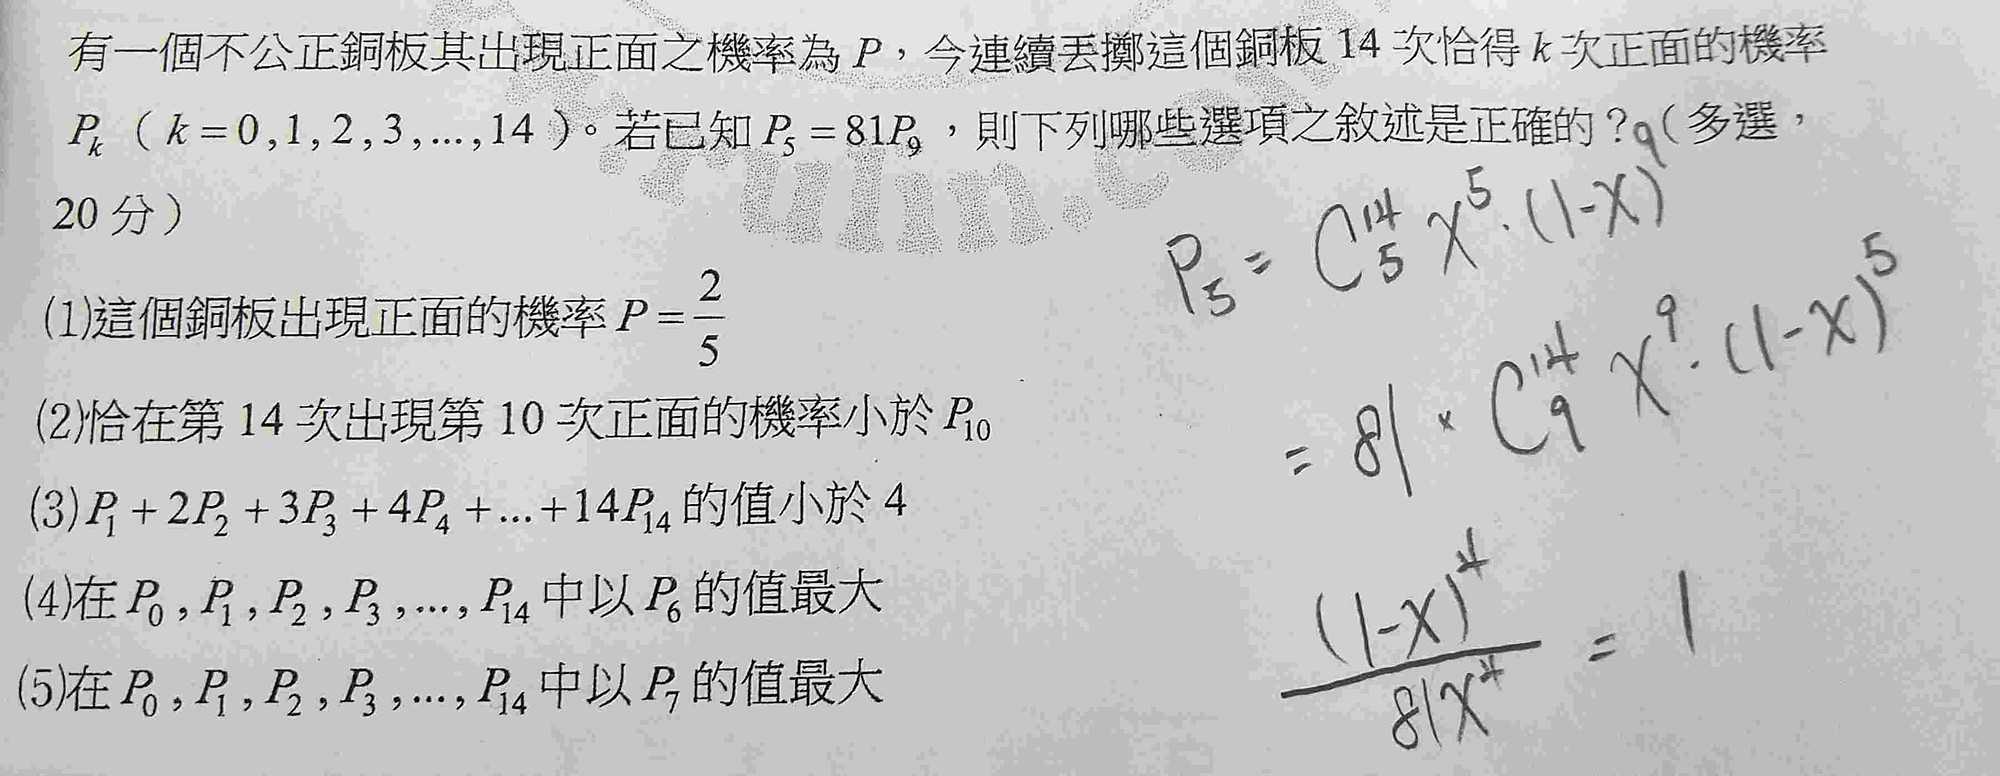 有一個不公正銅板其出現正面之機率為 P，今連續丟擲這個銅板 14 次恰得 k 次正面的機率
P_k ( k = 0 , 1 , 2 , 3 , ... , 14 )。若已知 P_5 = 81P_9，則下列哪些選項之敘述是正確的？(多選，
20 分)
(1)這個銅板出現正面的機率 P = 2/5
(2)恰在第 14 次出現第 10 次正面的機率小於 P_10
(3) P_1 + 2P_2 + 3P_3 + 4P_4 + ... + 14P_14 的值小於 4
(4)在 P_0 , P_1 , P_2 , P_3 , ... , P_14 中以 P_6 的值最大
(5)在 P_0 , P_1 , P_2 , P_3 , ... , P_14 中以 P_7 的值最大
P_5 = C^14_5 X^5 · (1-X)^9
= 81 × C^14_9 X^9 · (1-X)^5
(1-X)^4 / 81X^4 = 1